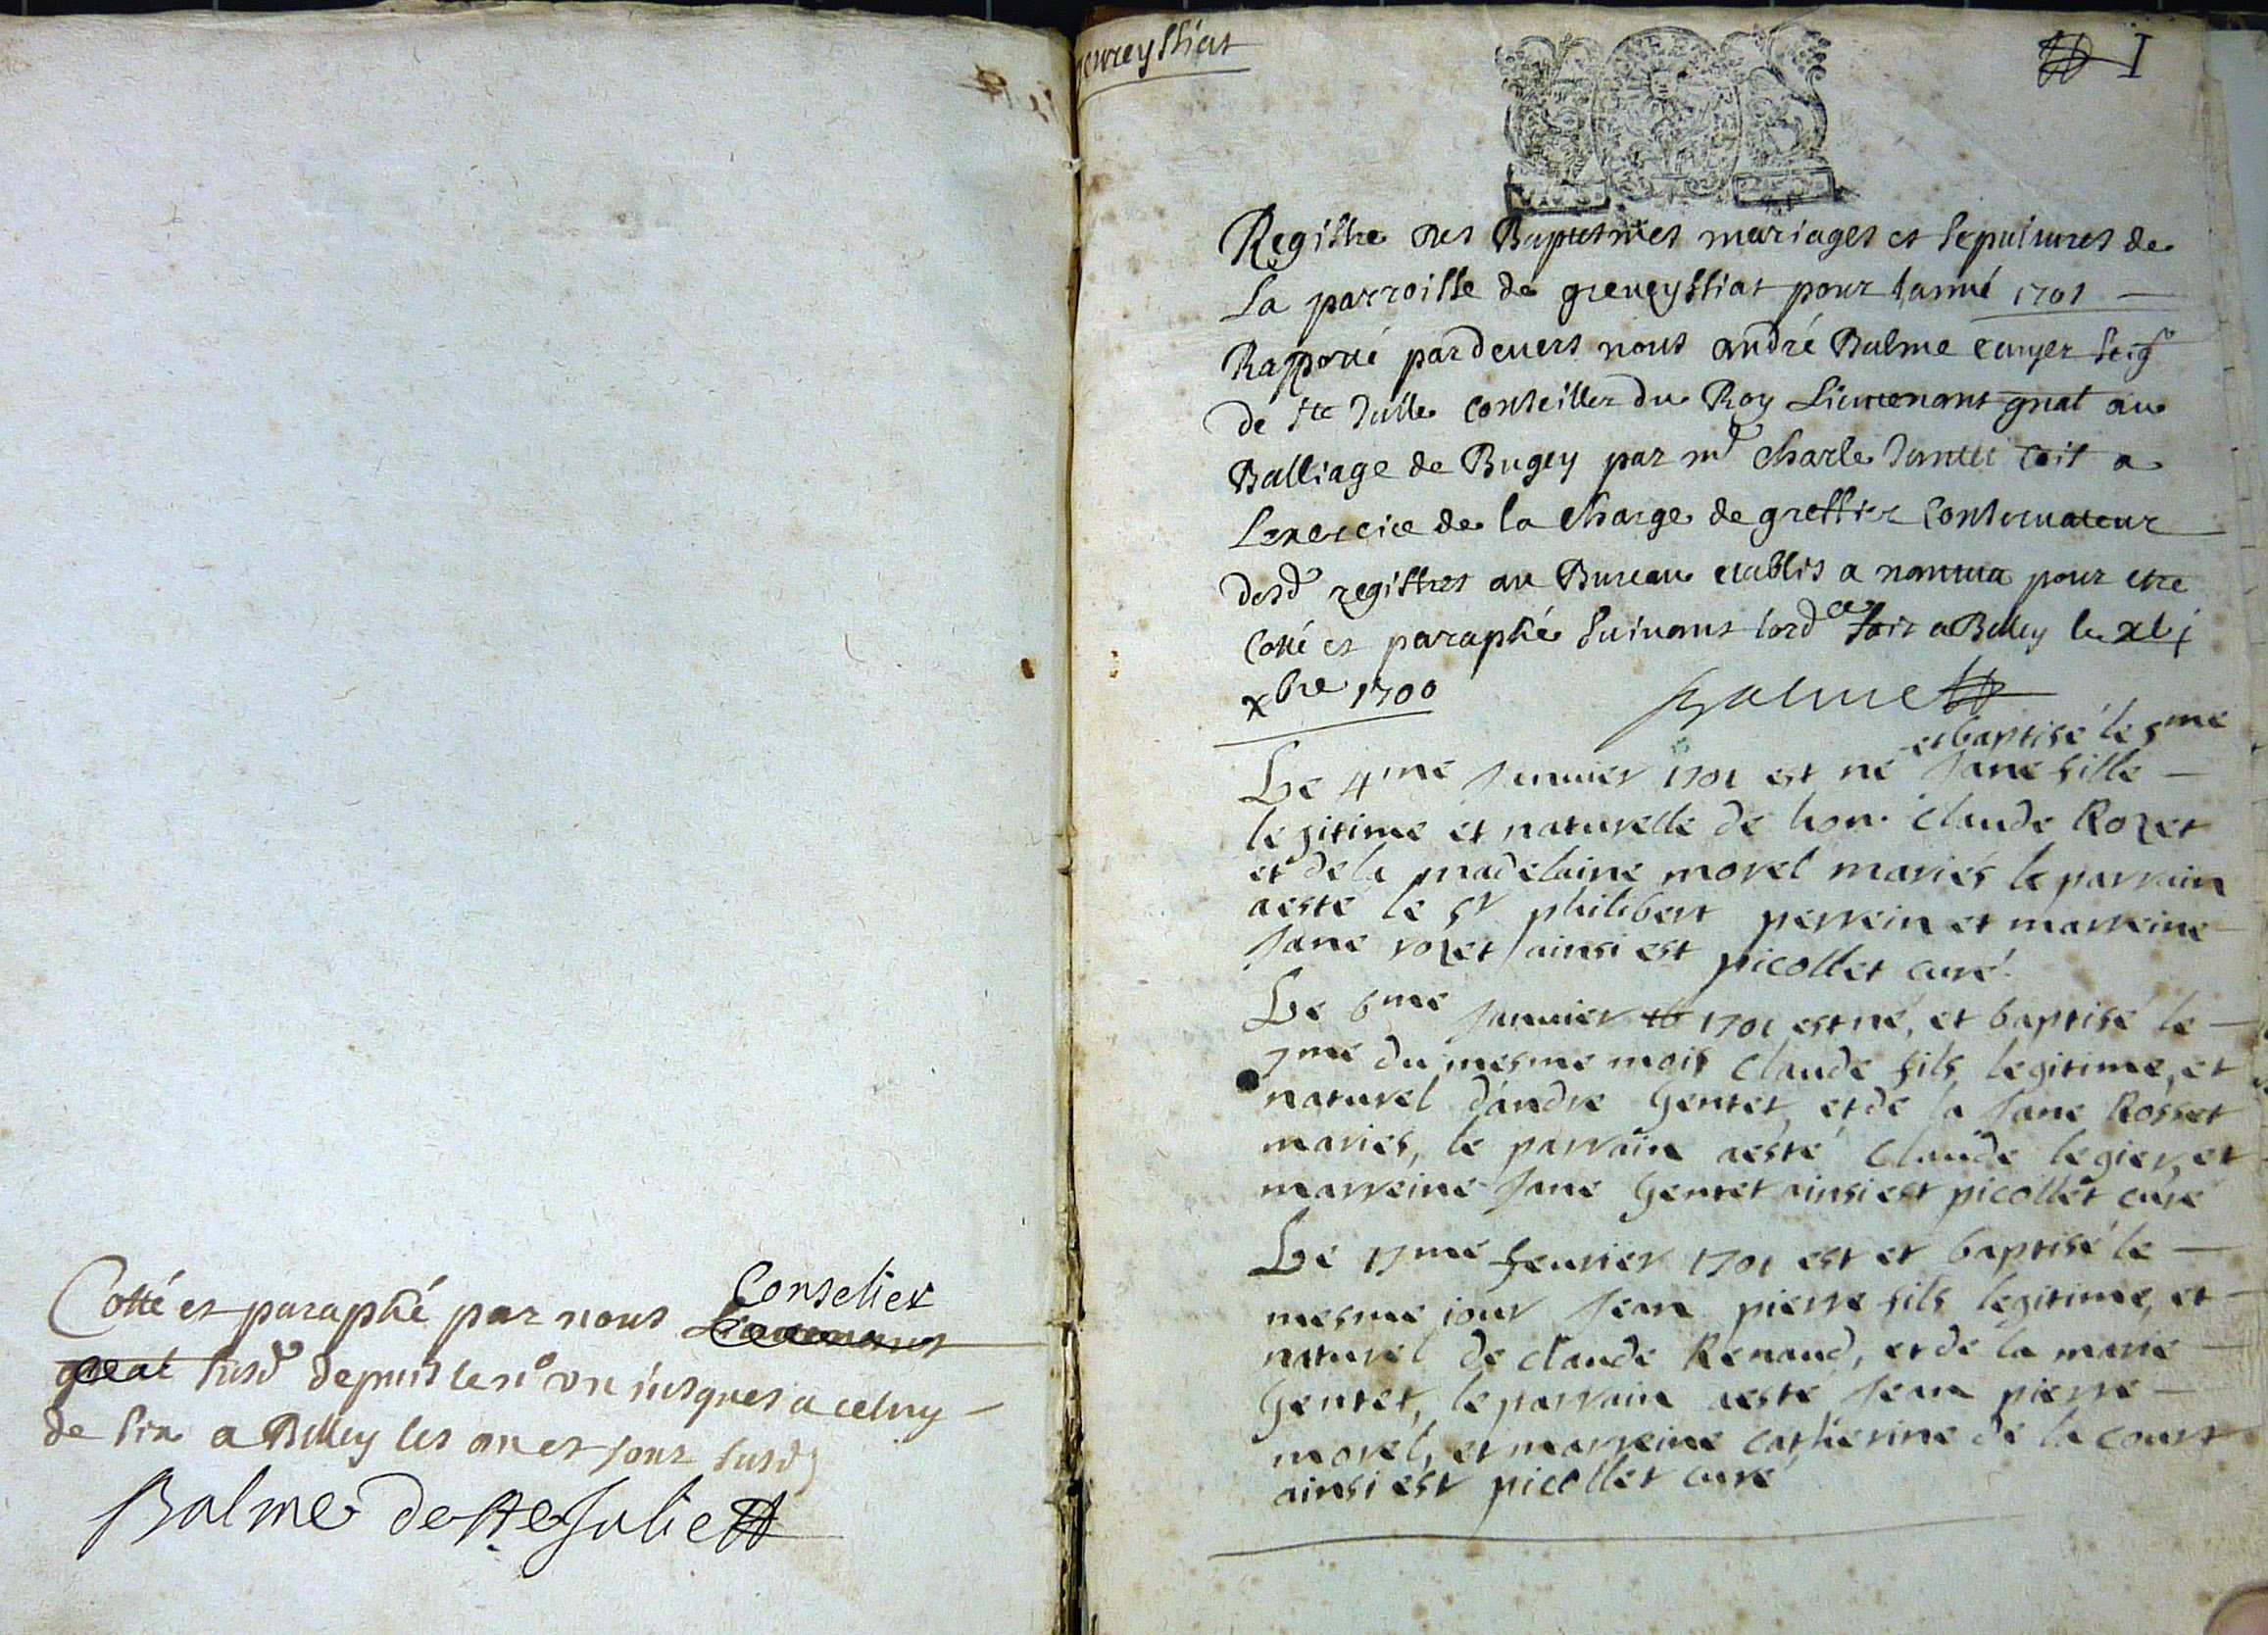 Cotté et paraphé par nous Conselier
gnal susd. depuis le n.o un jusques a celuy
de six a Belley les an et jour susd.
Balme de Ste Julie
I
Registre des Baptesmes mariages et sepultures de
La parroisse de greueyssiat pour lanné 1701
Rapporté pardeuers nous andré Balme ecuyer seigr
de Ste Jullie conseiller du Roy Lieutenant gnal au
Balliage de Bugey par mr Charle commis a
Lexercice de la charge de greffier conseruateur
desd. registres au Bureau etablis a nantua pour etre
Cotté et paraphé suiuant lordce fait a Belley le xbj
xbre 1700 Balme
et baptisé le 5me
Le 4me Januier 1701 est né Jane fille
legitime et naturelle de hon. Claude Rozet
et de la madelaine morel mariés le parrain
a esté le sr philibert perrein et marreine
Jane rozet ainsi est picollet curé.
Le 6me Januier 1701 est né, et baptisé le
7me du mesme mois Claude fils legitime, et
naturel d'andre Gentet, et de la Jane Rosset
mariés, le parrain a esté Claude legier, et
marreine Jane Gentet ainsi est picollet curé
Le 17me feurier 1701 est et baptisé le
mesme jour Jean pierre fils legitime, et
naturel de claude Renaud, et de la marie
Gentet, le parrain a esté Jean pierre
morel, et marreine catherine de la cour
ainsi est picollet curé